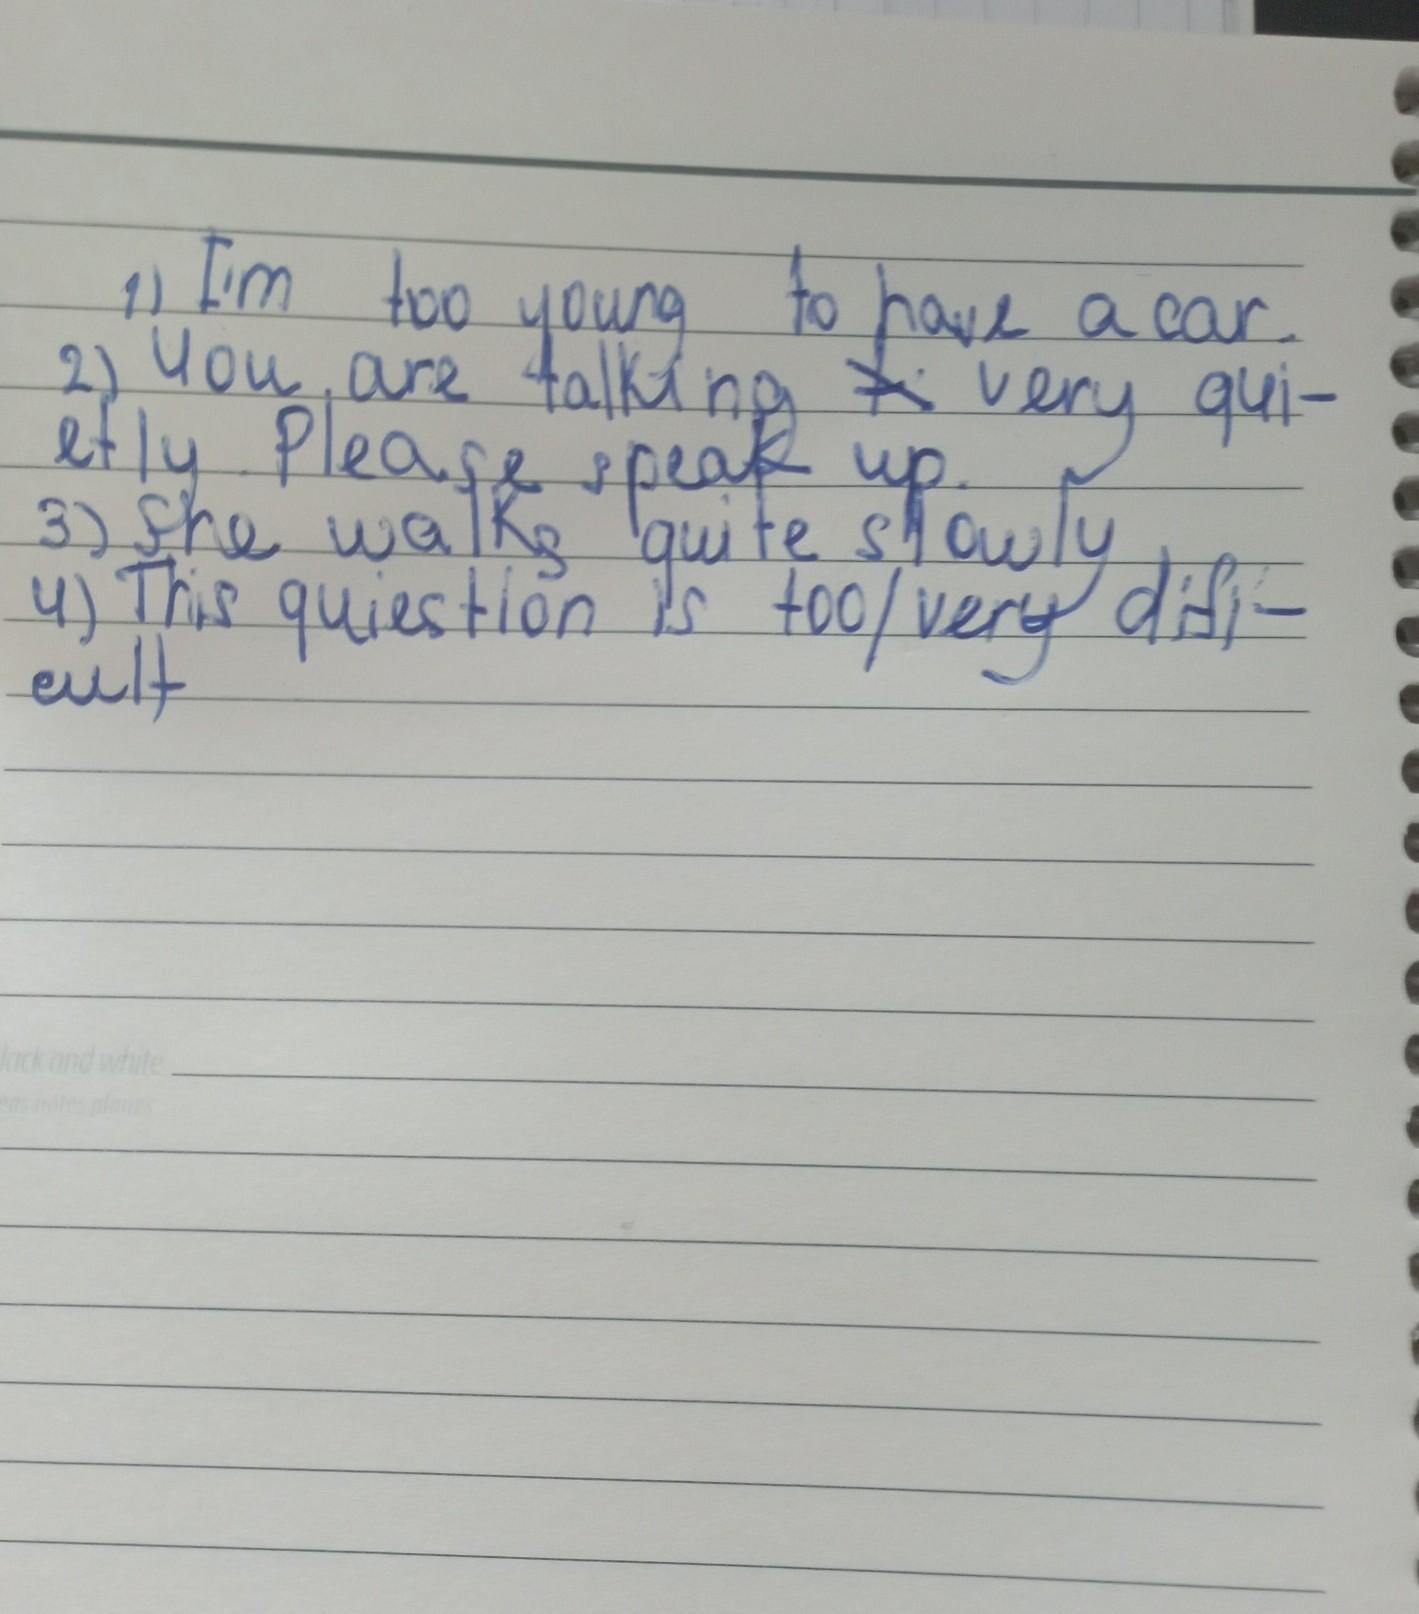 1) I'm too young to have a car.
2) You are talking very qui-
etly. Please speak up.
3) She walks quite slowly
4) This quiestion is too/very difi-
cult
lack and white
eas notes planes